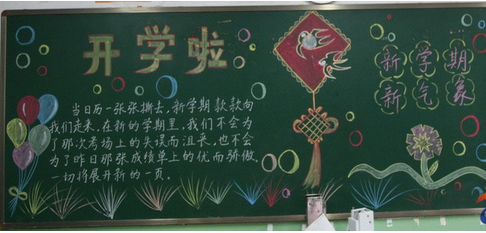 开学啦
当日历一张张撕去，新学期款款向
我们走来，在新的学期里，我们不会为
了那次考场上的失误而沮丧，也不会
为了昨日那张成绩单上的优而骄傲，
一切将展开新的一页。
新学期
新气象